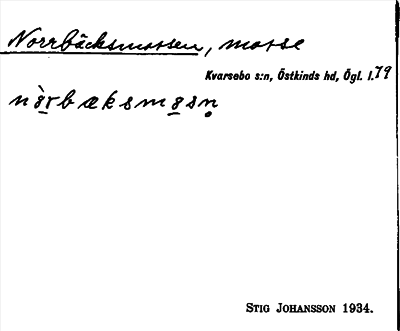 Norrbäcksmossen, mosse
Kvarsebo s:n, Östkinds hd, Ögl. l. 79
nò̱rbæksmo̱sn̥
STIG JOHANSSON 1934.